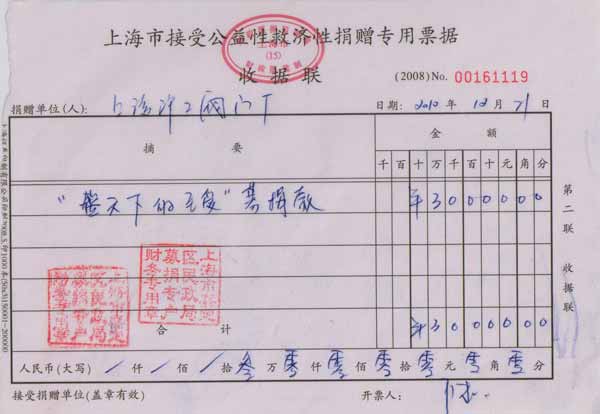 上海市接受公益性救济性捐赠专用票据
上海市
(15)
收据联
(2008)No. 00161119
捐赠单位(人): 上海沪工阀门厂
日期: 2010 年 12 月 21 日
摘 要
金 额
千 百 十 万 千 百 十 元 角 分
募捐款
¥ 3 0 0 0 0 0 0
上海市
区民政局
募捐专户
财务专用章
合 计
¥ 3 0 0 0 0 0 0
人民币(大写) / 仟 / 佰 / 拾 叁 万 零 仟 零 佰 零 拾 零 元 零 角 零 分
接受捐赠单位(盖章有效)
开票人:
第二联 收据联